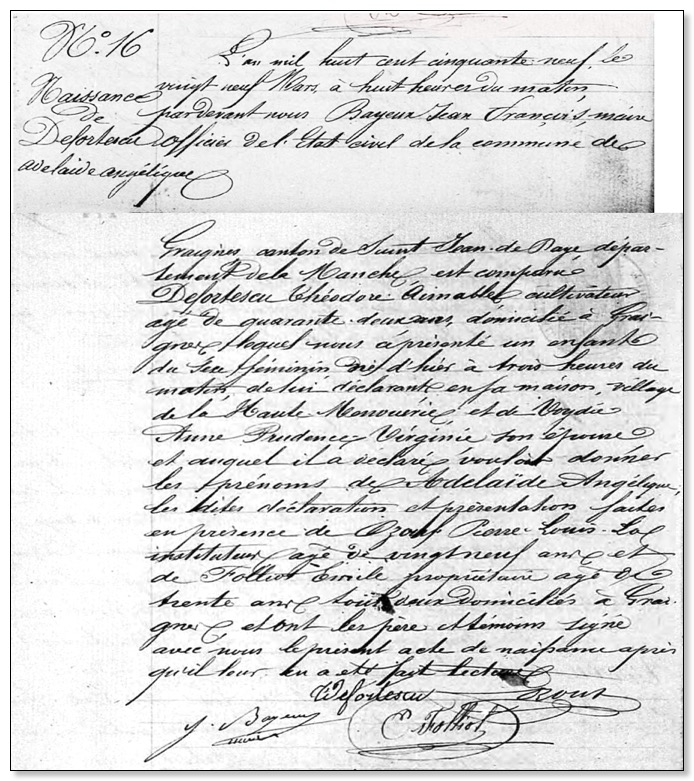 N° 16
Naissance
de
Defortescu
adelaide angélique
L'an mil huit cent cinquante neuf, le
vingt neuf Mars, à huit heures du matin,
pardevant nous Bayeux Jean François, maire
officier de l'Etat civil de la commune de
Graignes, canton de Saint Jean de Daye, dépar-
tement de la Manche, est comparu
Defortescu Théodore Aimable, cultivateur
agé de quarante deux ans, domicilié à Grai-
gnes, lequel nous a présenté un enfant
du sexe féminin né d'hier à trois heures du
matin, de lui déclarant en sa maison, village
de la Haute et de Voydie
Anne Prudence Virginie son épouse
et auquel il a déclaré vouloir donner
les prénoms de Adelaïde Angélique,
les dites déclaration et présentation faites
en présence de Pierre Louis
instituteur agé de vingt neuf ans, et
de Folliot Emile propriétaire agé de
trente ans, tous deux domiciliés à Grai-
gnes, et ont les père et témoins signé
avec nous le présent acte de naissance après
qu'il leur en a été fait lecture
Defortescu
J. Bayeux
E. Folliot